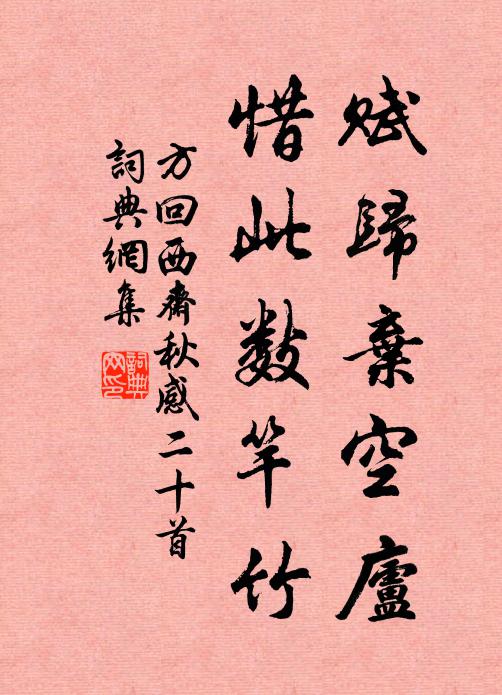 賦歸棄空廬
惜此數竿竹
方回西齋秋感二十首
詞典網集
詞典網印